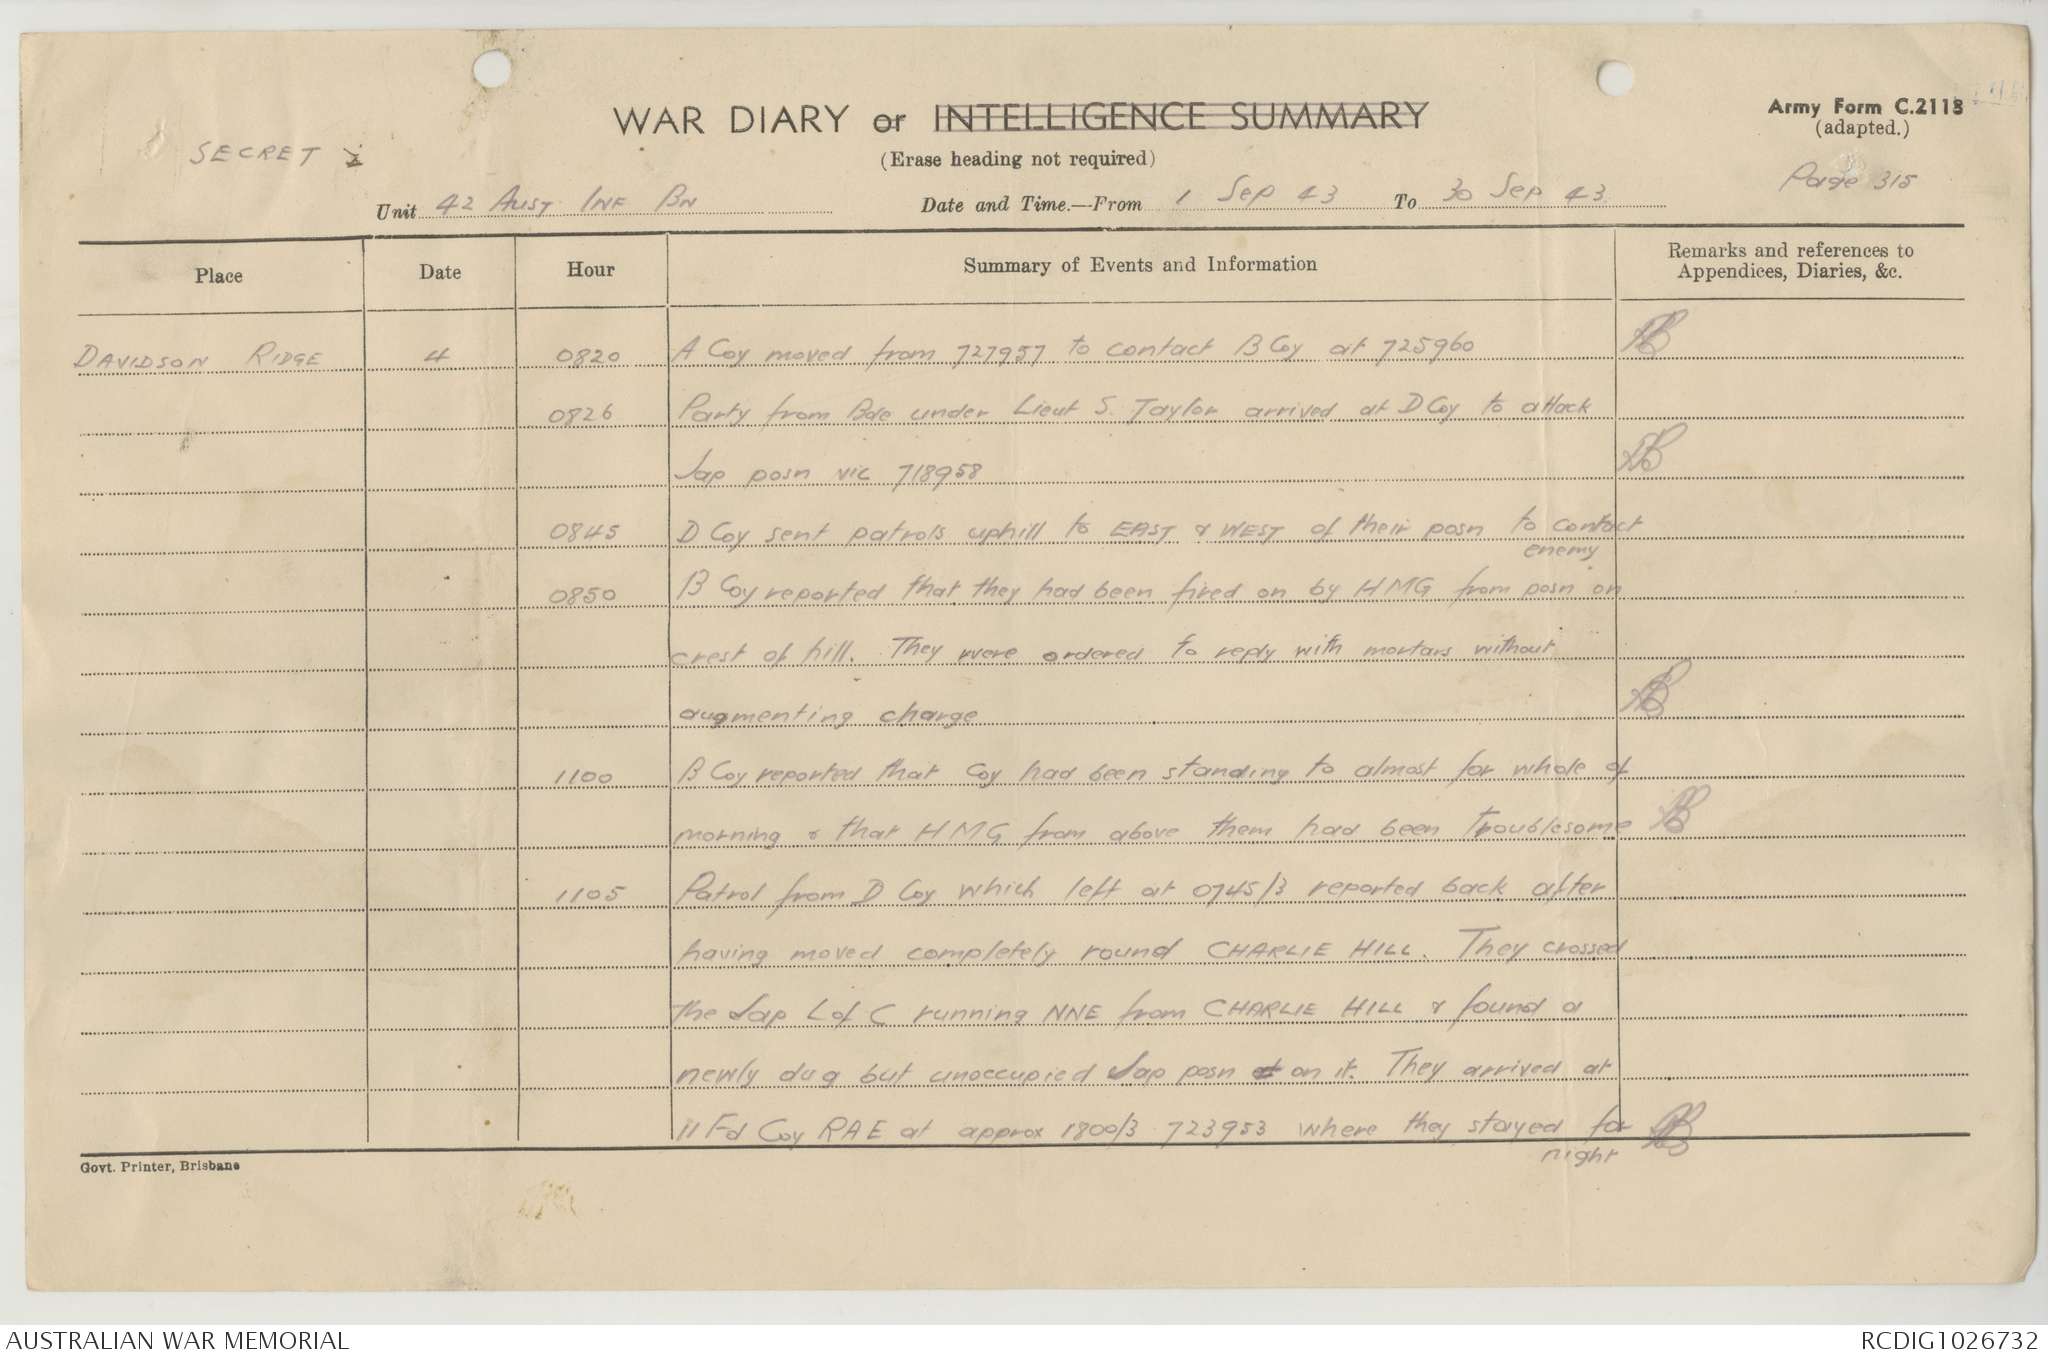 WAR DIARY or INTELLIGENCE SUMMARY
(Erase heading not required)
Army Form C.2118
(adapted.)
SECRET
Page 315
Unit 42 AUST INF BN Date and Time.—From 1 Sep 43 To 30 Sep 43
Place Date Hour Summary of Events and Information Remarks and references to Appendices, Diaries, &c.
DAVIDSON RIDGE 4 0820 A Coy moved from 727957 to contact B Coy at 725960
0826 Party from Bde under Lieut S. Taylor arrived at D Coy to attack
Jap posn vic 718958
0845 D Coy sent patrols uphill to EAST & WEST of their posn to contact
enemy
0850 B Coy reported that they had been fired on by HMG from posn on
crest of hill. They were ordered to reply with mortars without
augmenting charge
1100 B Coy reported that Coy had been standing to almost for whole of
morning & that HMG from above them had been troublesome
1105 Patrol from D Coy which left at 0745/3 reported back after
having moved completely round CHARLIE HILL. They crossed
the Jap L of C running NNE from CHARLIE HILL & found a
newly dug but unoccupied Jap posn on it. They arrived at
11 Fd Coy RAE at approx 1800/3 723953 where they stayed for
night
Govt. Printer, Brisbane
AUSTRALIAN WAR MEMORIAL RCDIG1026732